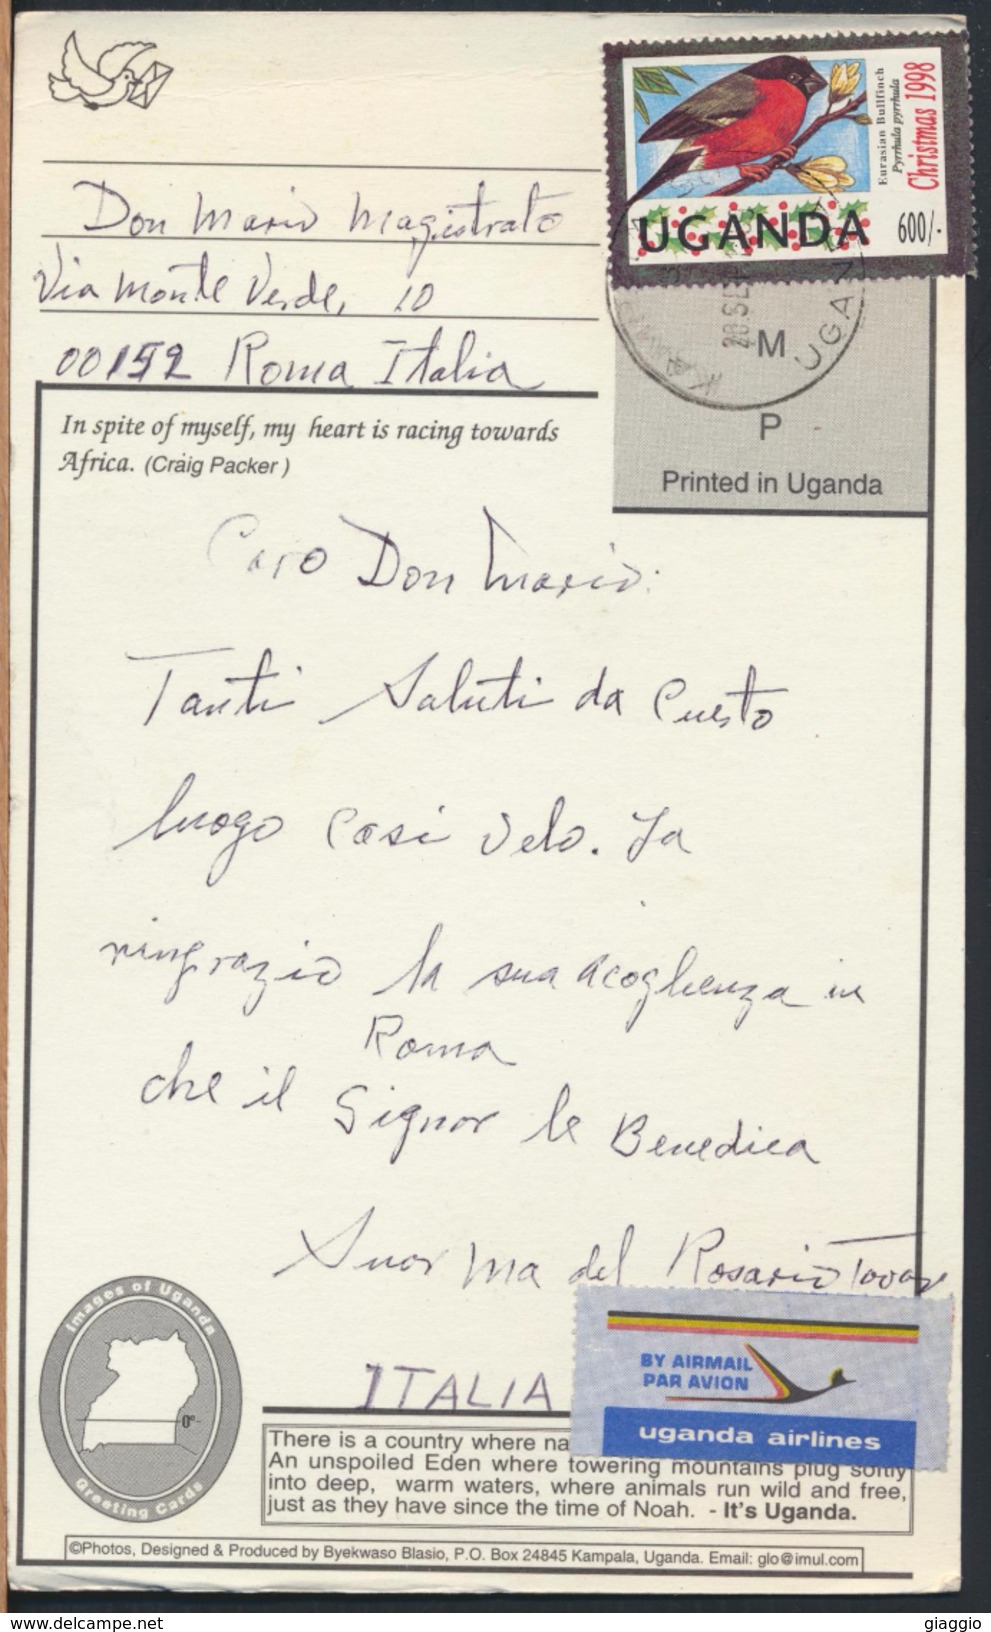 Eurasian Bullfinch
Pyrrhula pyrrhula
Christmas 1998
UGANDA 600/-
Don Mario Magistrato
Via Monte Verde, 10
00152 Roma Italia
28 SE
UGAN
M
P
Printed in Uganda
In spite of myself, my heart is racing towards
Africa. (Craig Packer)
Caro Don Mario:
Tanti Saluti da Cuesto
luogo Cosi velo. La
ringrazio la sua acoglienza in
Roma
che il Signor le Benedica
Suor Ma del Rosario Tovar
ITALIA
BY AIRMAIL
PAR AVION
uganda airlines
Images of Uganda
0°
Greeting Cards
There is a country where na
An unspoiled Eden where towering mountains plug softly
into deep, warm waters, where animals run wild and free,
just as they have since the time of Noah. - It's Uganda.
©Photos, Designed & Produced by Byekwaso Blasio, P.O. Box 24845 Kampala, Uganda. Email: glo@imul.com
www.delcampe.net
giaggio